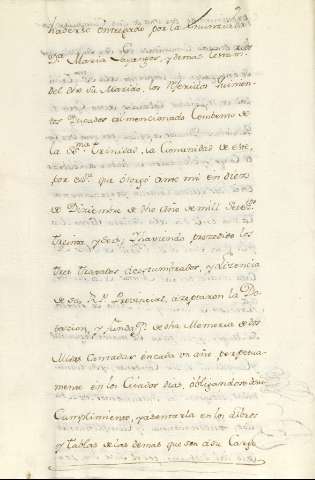 haverse entregado por la enunciada
Dª Maria Layangos, y demas testam.
del dho su Marido, los referidos quinien-
tos Ducados al mencionado Combento de
la SSma Trinidad, la Comunidad de este,
por escra que otorgó ante mi en diez
de Diziembre de dho año de mil setezos
treinta y dos, y haviendo prozedido los
tres tratados acostumbrados, y Lizencia
de su R. P. Provincial, azeptaron la Do-
tazion, y fundazn de dha Memoria de dos
Misas Cantadas en cada un año perpetua-
mente en los Citados dias, obligandose a su
Cumplimiento, y asentarla en los libros
y Tablas de las demas que son a su cargo